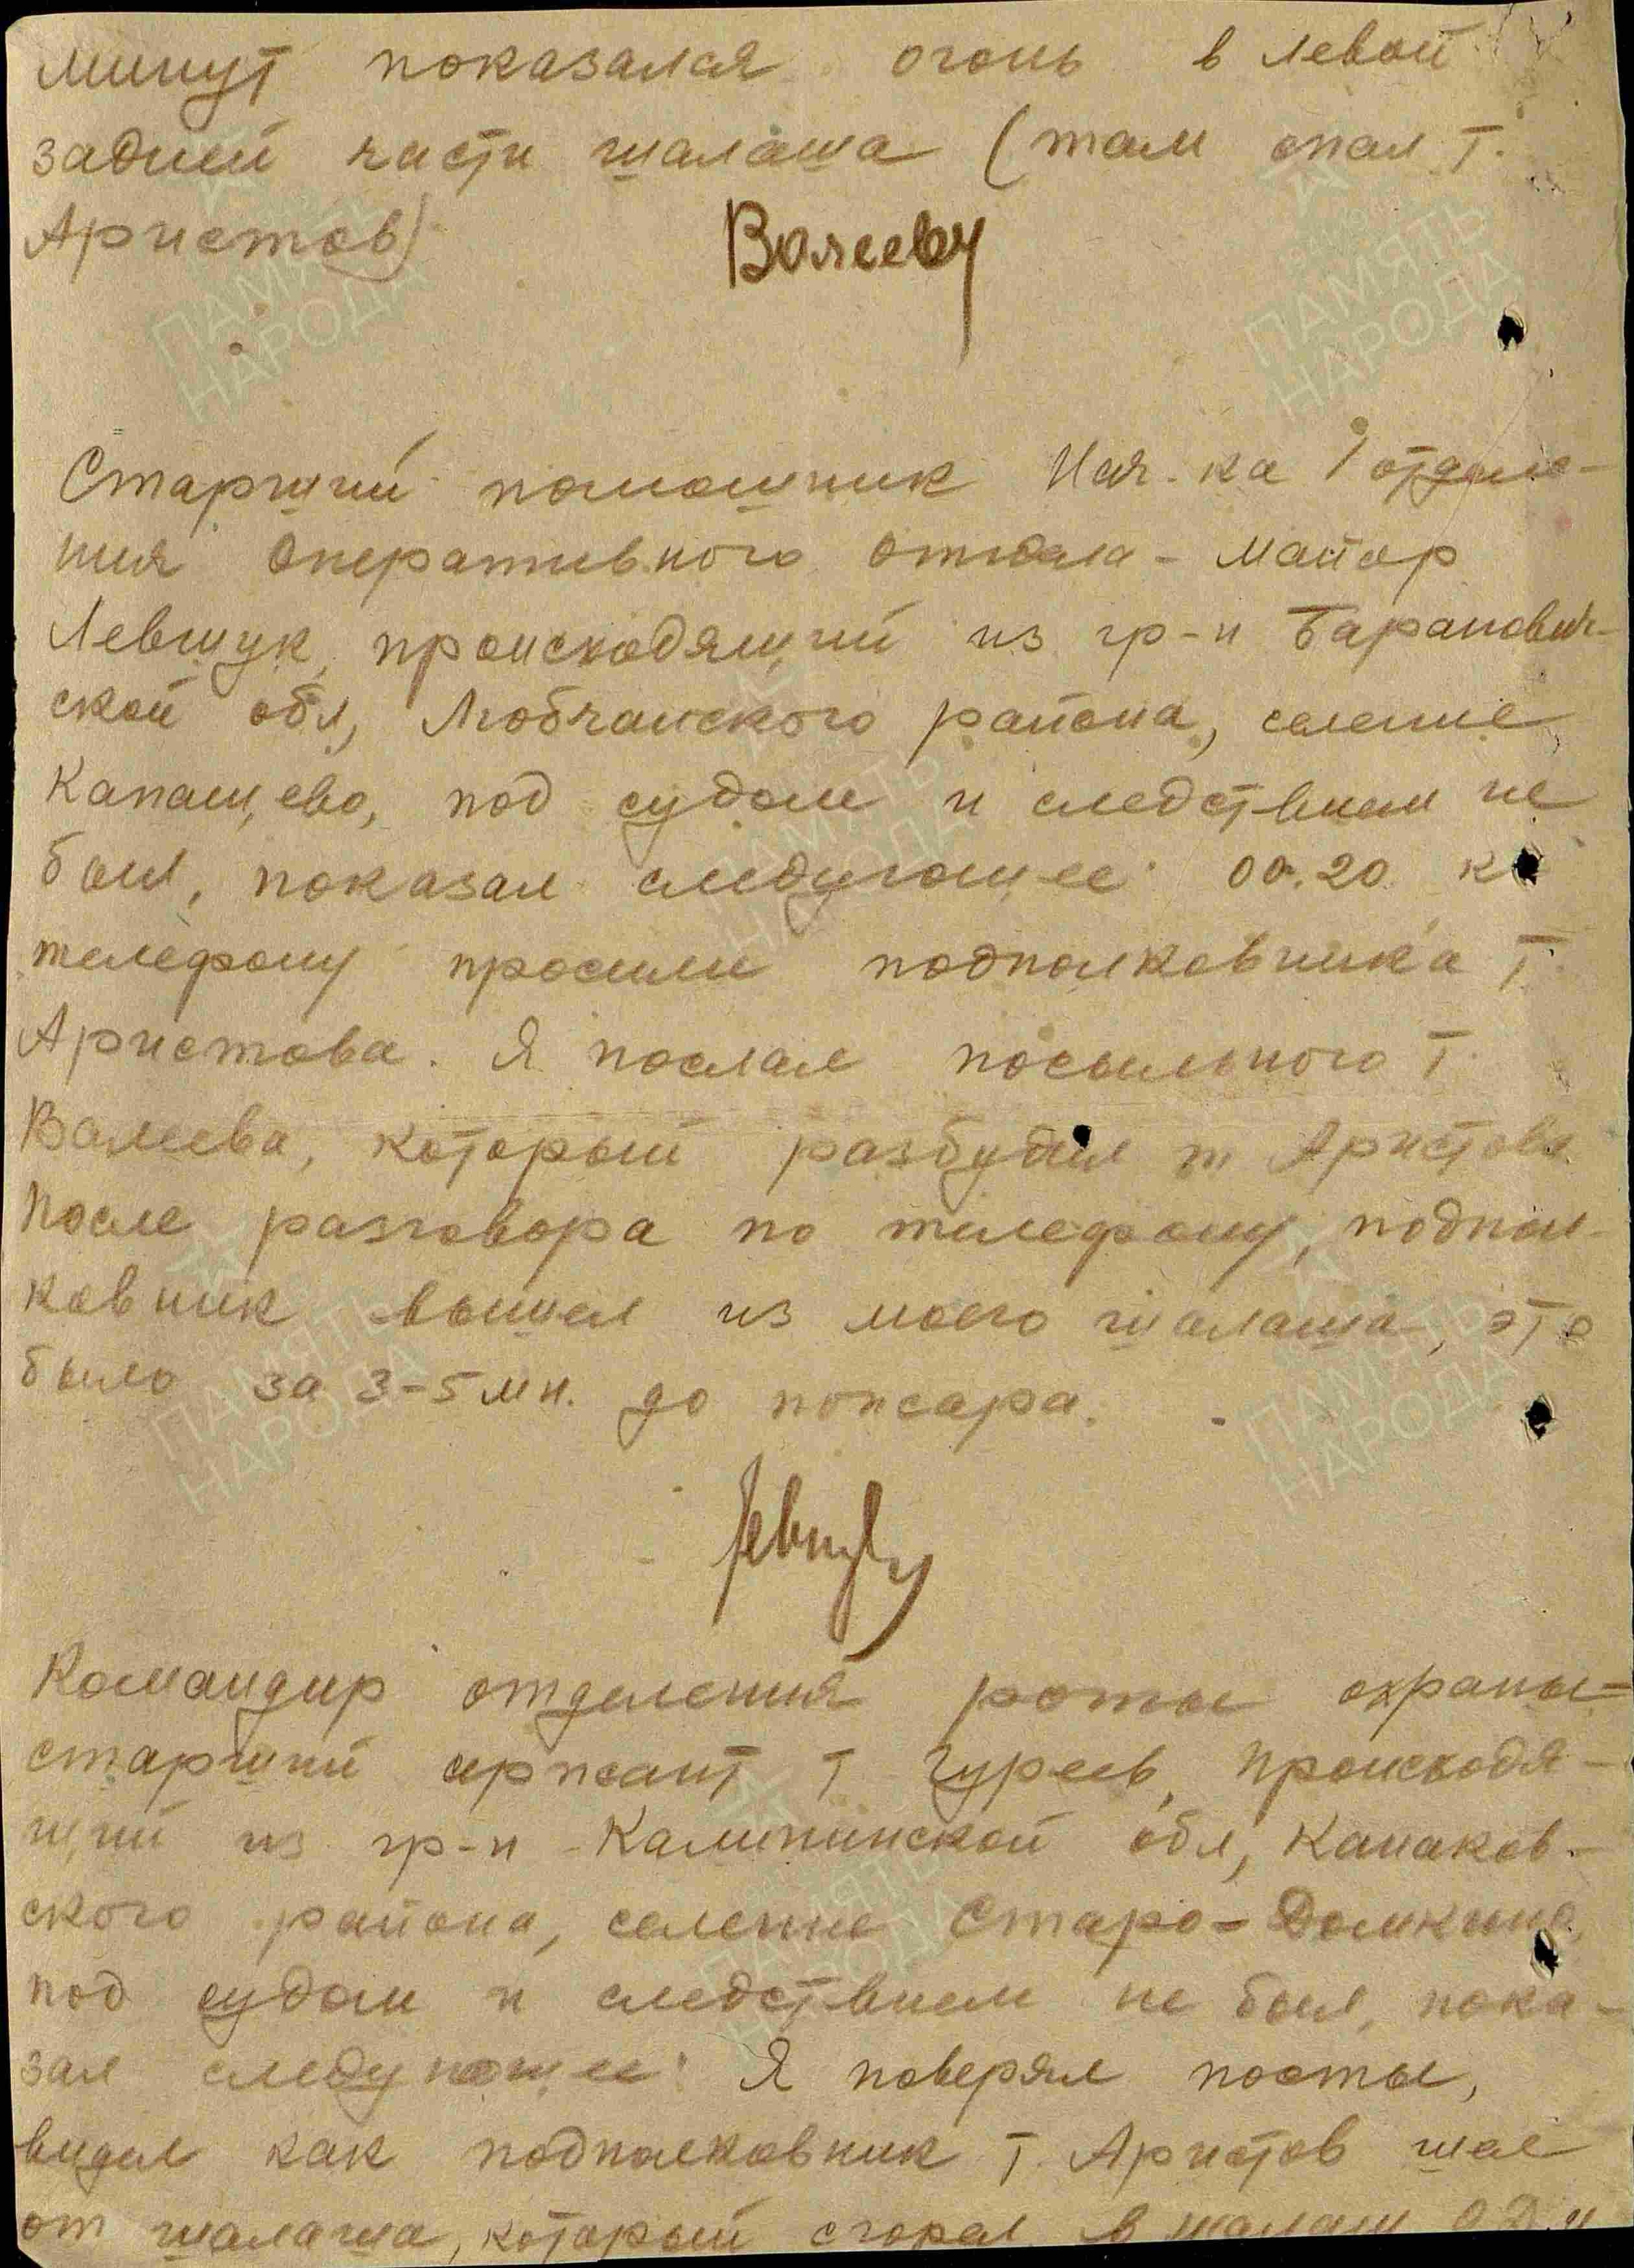 минут показался огонь в левой
задней части шалаша (там спал т.
Аристов)
Валеев
Старший помошник Нач-ка 1 отделе-
ния оперативного отдела - майор
Левшук, происходящий из гр-н Баранович-
ской обл, Любчанского района, селение
Капащево, под судом и следствием не
был, показал следующее: 00.20 к
телефону просили подполковника т.
Аристова. Я послал посыльного т.
Валеева, который разбудил т Аристова
После разговора по телефону, подпол-
ковник вышел из моего шалаша, это
было за 3-5 мн. до пожара.
Командир отделения роты охраны-
старший сержант т Гуреев, происходя-
щий из гр-н Калининской обл, Канаков-
ского района, селение Старо-Домкино
под судом и следствием не был, пока-
зал следующее: Я поверял посты,
видел как подполковник т. Аристов шел
от шалаша, который сгорел в шалаш О.Д. и
ПАМЯТЬ НАРОДА
ПАМЯТЬ НАРОДА
ПАМЯТЬ НАРОДА
ПАМЯТЬ НАРОДА
ПАМЯТЬ НАРОДА
ПАМЯТЬ НАРОДА